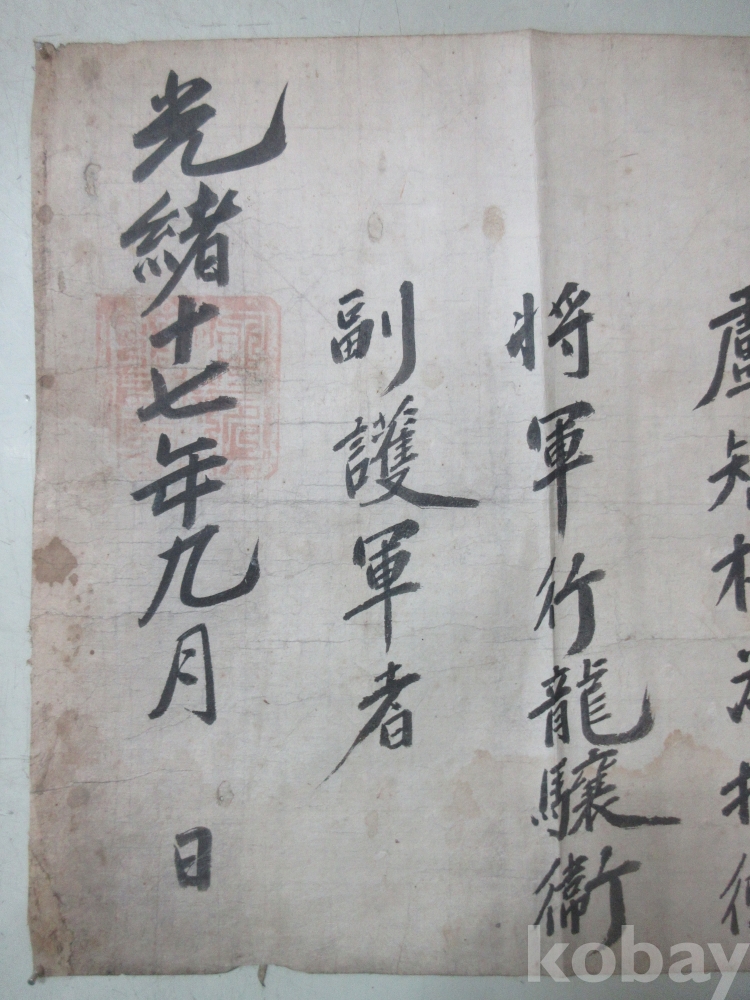 盧知 為折衝
將軍行龍驤衛
副護軍者
光緒十七年九月 日
kobay